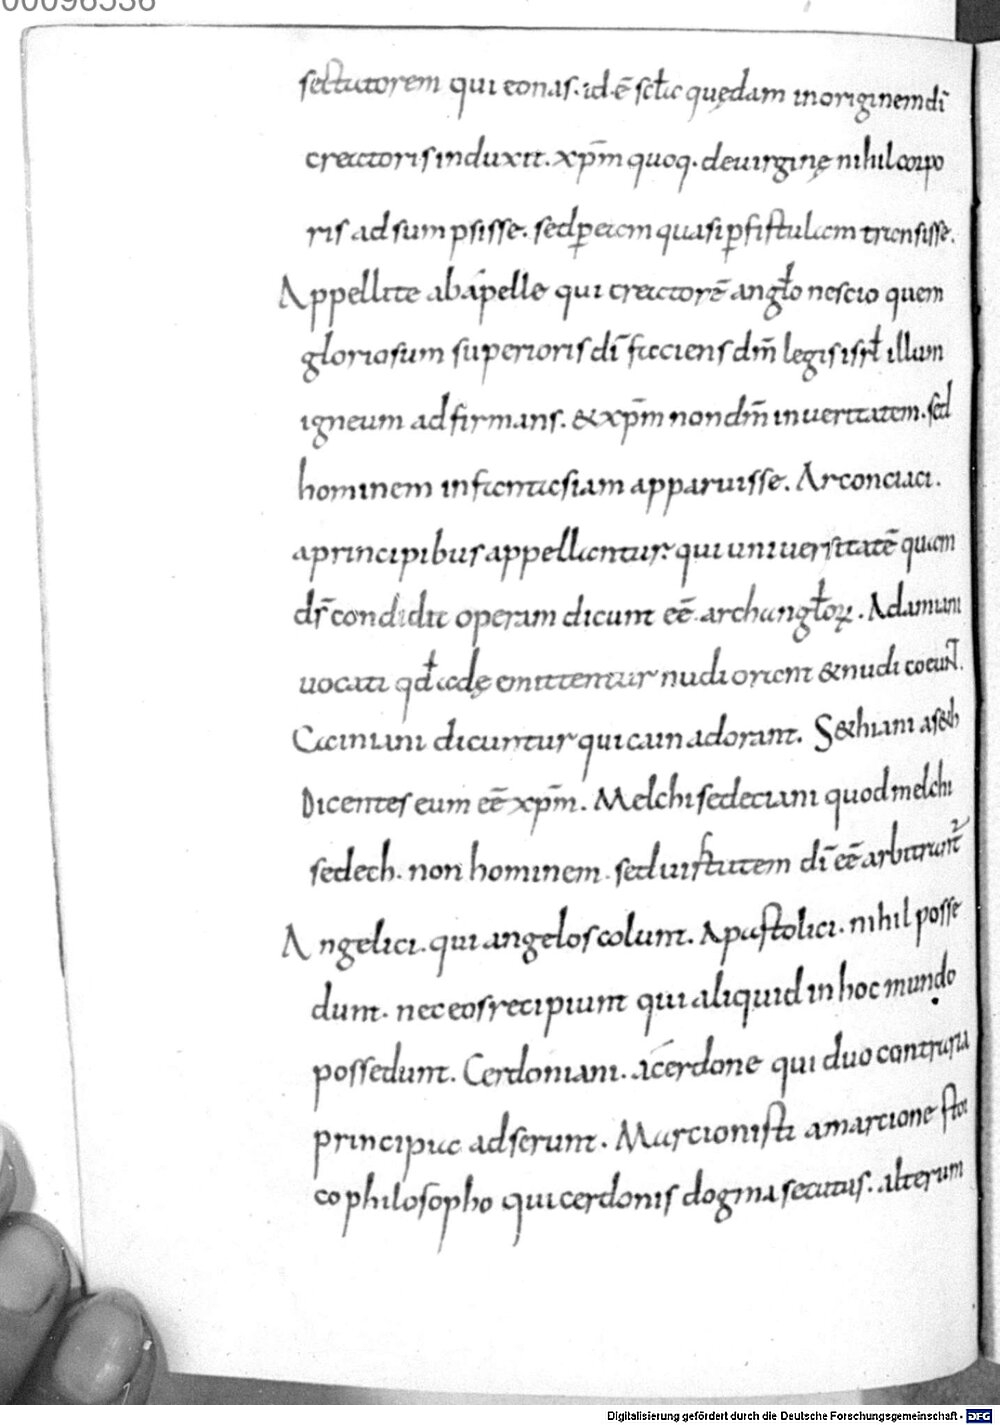 00096536
sectatorem qui eonas. id ē sc̄la quędam in originem dī
creatoris induxit. xp̄m quoq. de uirginę nihil corpo
ris adsumpsisse. sed p̱ eam quasi p̱ fistulam transisse.
Appellite ab apelle qui creatorē angl̄o nescio quem
gloriosum superioris dī faciens dm̄ legis isrl̄ illum
igneum adfirmans. & xp̄m non dm̄ in ueritatem. sed
hominem in fantasiam apparuisse. Arconciaci.
a principibus appellantur. qui uniuersitatē quam
dr̄ condidit operam dicunt eē archangl̄oꝝ. Adamiani
uocati qd̄ adę emittentur nudi orient & nudi coeunt̄.
Cainiani dicuntur qui cain adorant. Sethiani a seth
Dicentes eum eē xp̄m. Melchisedeciani quod melchi
sedech. non hominem. sed uirtutem dī eē arbitrant᷑
Angelici. qui angelos colunt. Apostolici. nihil posse
dunt. nec eos recipiunt qui aliquid in hoc mundo
possedunt. Cerdoniani. a cerdone qui duo contraria
principia adserunt. Marcionisti a marcione stoi
co philosopho qui cerdonis dogma secutus. alterum
Digitalisierung gefördert durch die Deutsche Forschungsgemeinschaft - DFG